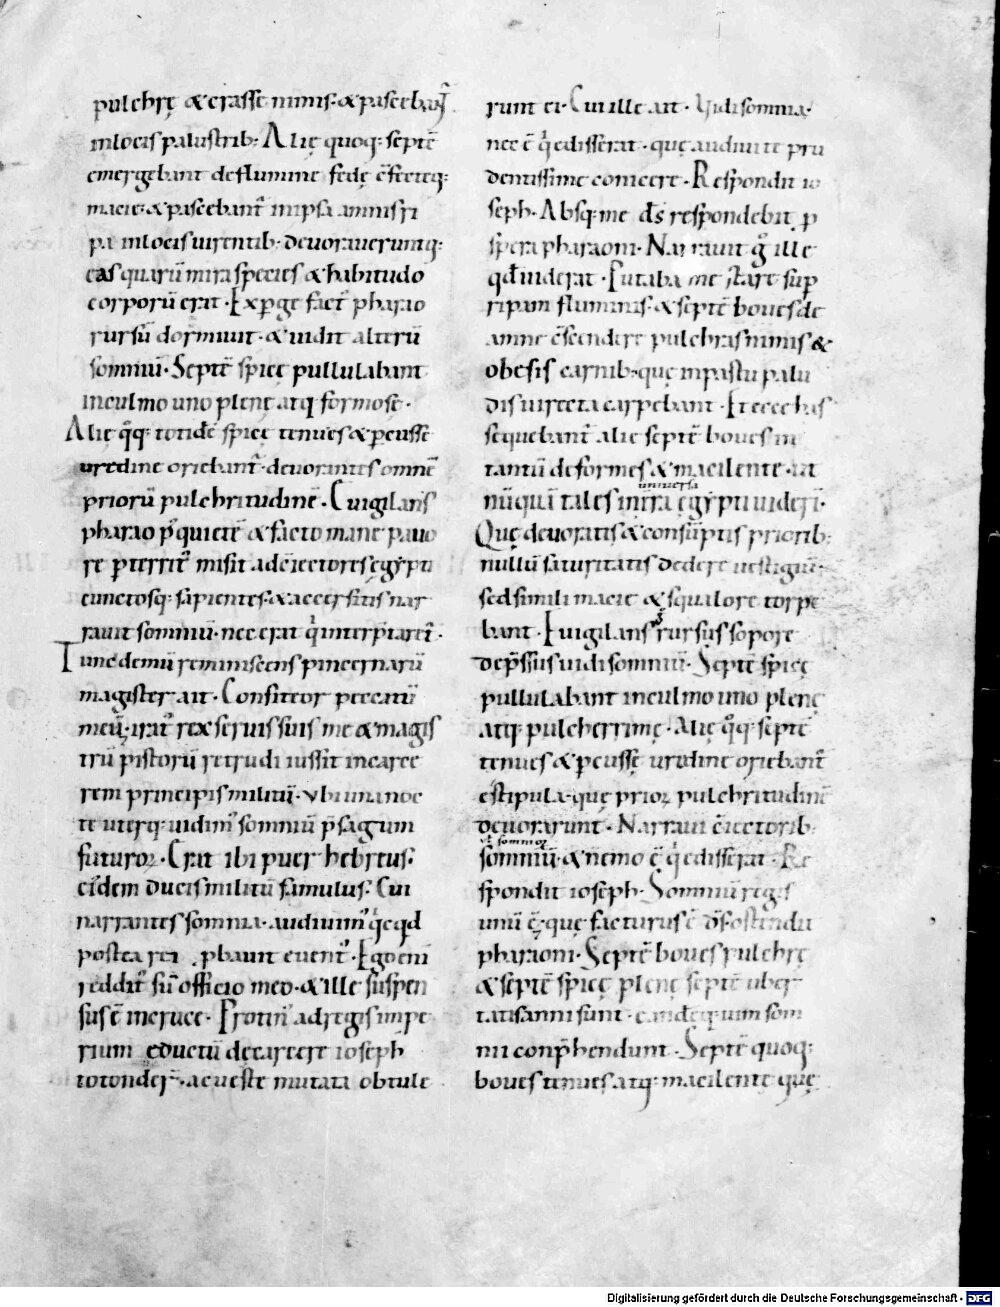 pulchrę & crasse nimis· & pascebant̃
in locis palustrib;· Alię quoq; septē
emergebant de flumine fedę c̄fecteq;
macie· & pascebant᷑ in ipsa amnis ri
pa in locis uirentib;· deuorauerunt q;
eas quarū mira species & habitudo
corporū erat· Expgefact᷑ pharao
rursū dormiuit· & uidit alterū
somniū· Septē spicę pullulabant
in culmo uno plenę atq; formose·
Alię q̊q; totidē spicę tenues & ꝑcusse
uredine oriebant᷑· deuorantes omnē
priorū pulchritudinē· Euigilans
pharao p̄ quietē & facto mane pauo
re ꝑterrit᷒ misit ad c̄iectores ęgypti
cunctosq; sapientes· & accersitis nar
rauit somniū· nec erat q̇ interp̄taret᷑·
Tunc demū reminiscens pincernarū
magister ait· Confiteor peccatū
meū; irat᷒ rex seruis suis me & magis
trū pistorū retrudi iussit in carce
rem principis militū· ubi una noc
te uterq; uidim᷒ somniū p̄sagum
futuroꝝ· Erat ibi puer hebreus·
eidem ducis militū famulus· Cui
narrantes somnia· audiuim᷒ q̇cq̇d
postea rei ꝓbauit euent᷒· Ego enī
reddit᷒ sū officio meo· & ille suspen
sus ē in cruce· Protin᷒ ad regis impe
rium eductū de carcere ioseph
totonder̄· ac ueste mutata obtule
runt ei· Cui ille ait· Uidi somnia·
nec ē q̇ edisserat· quę audiui te pru
dentissime conicere· Respondit io
seph· Absq; me d̄s respondebit ꝓ
spera pharaoni· Narrauit ḡ ille
qd̄ uiderat· Putaba me stare sup
ripam fluminis· & septē boues de
amne c̄scendere pulchras nimis &
obesis carnib;· quę in pastu palu
dis uirecta carpebant· Et ecce has
sequebant᷑ alie septē boues in
tantū deformes & macilente· ut
nūquā tales in tr̄a ęgypti uiderī·
uniuersa
Quę deuoratis & consūptis priorib;
nullū saturitatis dedere uestigiū·
sed simili macie & squalore torpe
bant· Euigilans rursus sopore
dep̄ssus uidi somniū· Septē spicę
pullulabant in culmo uno plenę
atq; pulcherrimę· Alię q̊q; septē
tenues & ꝑcusse uredine oriebant᷑
e stipula· quę prioꝝ pulchritudinē
deuorarunt· Narraui c̄iectorib;
somniū· & nemo ē q̇ edisserat· Re
spondit ioseph· Somniū regis
unū ē· quę facturus ē d̄s ostendit
pharaoni· Septē boues pulchrę
& septē spicę plenę septē uber
tatis anni sunt· eandeq; uim som
nii conp̄hendunt· Septē quoq;
boues tenues atq; macilentę quę
Digitalisierung gefördert durch die Deutsche Forschungsgemeinschaft - DFG